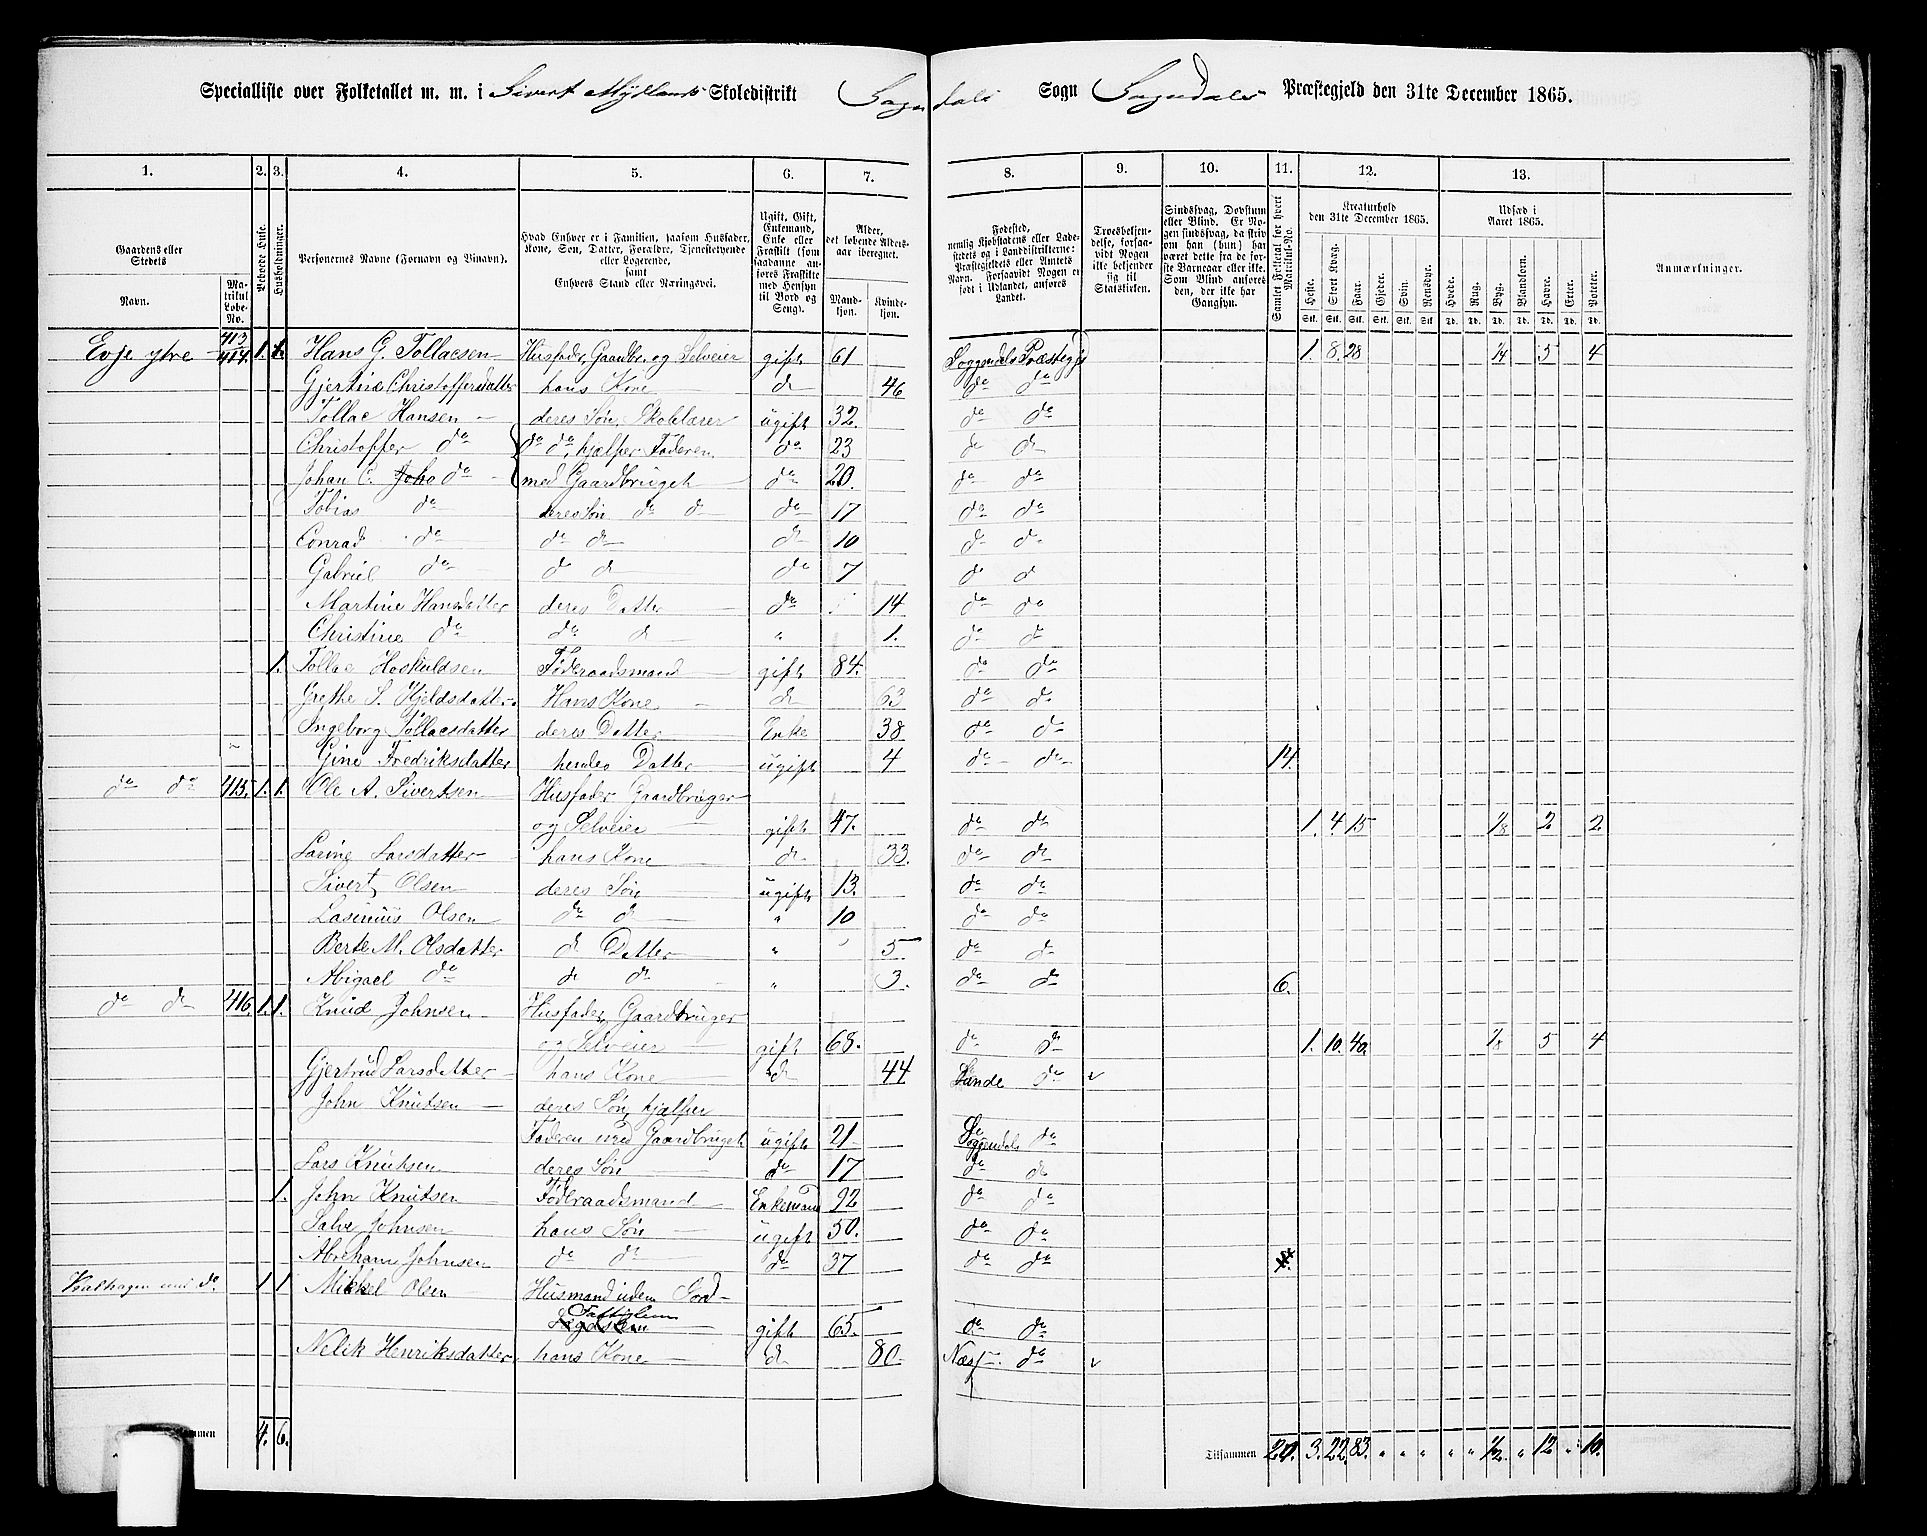 Specialliste over Folketallet m. m. i Sivert Mydlands Skoledistrikt Sogndals Sogn Sogndals Præstegjeld den 31te December 1865.
1. 2. 3. 4. 5. 6. 7. 8. 9. 10. 11. 12. 13.
Gaardens eller Stedets Navn. Matrikul Løbe-No. Beboede Huse. Husholdninger. Personernes Navne (Fornavn og Tilnavn). Hvad Enhver er i Familien, saasom Husfader, Kone, Søn, Datter, Forældre, Tjenestetyende eller Logerende, samt Enhvers Stand eller Næringsvei. Ugift, Gift, Enkemand, Enke eller Fraskilt (som saadanne anføres Fraskilte med Hensyn til Bord og Seng). Alder, det løbende Aldersaar iberegnet. Mandkjøn. Kvindekjøn. Fødested, nemlig Kjøbstadens eller Ladestedets og i Landdistrikterne: Præstegjeldets eller Amtets Navn. Forsaavidt Nogen er født i Udlandet, anføres Landet. Troesbekjendelse, forsaavidt Nogen ikke bekjender sig til Statskirken. Sindssvag, Døvstum eller Blind. Er Nogen sindssvag, da skriv om han (hun) har været dette fra de første Barneaar eller ikke. Som Blind anføres den, der ikke har Gangsyn. Samlet Folketal for hvert Matrikul-No. Kreaturhold den 31te December 1865. Udsæd i Aaret 1865. Anmærkninger.
Heste. Stort Kvæg. Faar. Gjeder. Svin. Rensdyr. Hvede. Rug. Byg. Blandkorn. Havre. Erter. Poteter.
Stk. Stk. Stk. Stk. Stk. Stk. Td. Td. Td. Td. Td. Td. Td.
Evje ytre 413 414. 1. 1. Hans G. Tollacsen Husfader, Gaardbr. og Selveier gift 61 Soggendals Præstegj 1. 8. 28 1/4 5 4
Gjertine Christoffersdatter hans Kone do 46 do do
Tollac Hansen deres Søn, Skolelærer ugift 32. do do
Christoffer do do do, hjælper Faderen do 23 do do
Johan C. do med Gaardbruget do 20. do do
Tobias do deres Søn do do do 17 do do
Conrad do do do do 10 do do
Gabriel do do do do 7 do do
Martine Hansdatter deres Datter do 14 do do
Christine do do do " 1. do do
1. Tollac Hoskuldsen Føderaadsmand gift 84. do do
Grethe S. Kjeldsdatter Hans Kone do 63 do do
Ingeborg Tollacsdatter deres Datter Enke 38 do do
Gine Fredriksdatter hendes Datter ugift 4 do do 14.
do do 415. 1. 1. Ole A. Sivertsen Husfader Gaardbruger
og Selveier gift 47. do do 1. 4 15 1/8 2 2
Larine Larsdatter hans Kone do 33. do do
Sivert Olsen deres Søn ugift 13. do do
Lasinius Olsen do do " 10 do do
Berte M. Olsdatter do Datter " 5 do do
Abigael do do do " 3. do do 6.
do do 416. 1. 1. Knud Johnsen Husfader, Gaardbruger
og Selveier gift 68. do do 1. 10. 40. 1/8 5 4
Gjertrud Larsdatter hans Kone do 44 Lunde do
John Knutsen deres Søn, hjælper
Faderen med Gaardbruget ugift 21 Soggendals do
Lars Knutsen deres Søn do 17 do do
1. John Knutsen Føderaadsmand Enkemand 92 do do
Salve Johnsen hans Søn ugift 50. do do
Abraham Johnsen do do do 37 do do
do. 1 1 Mikkel Olsen Husmand uden Jord
Fattiglem gift 65. do do
Nelik Henriksdatter hans Kone do 80. Næs do
4. 6. Tilsammen 3. 22. 83. " " " " " 1/2. " 12 " 10.